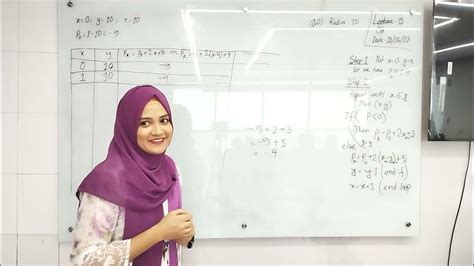 x=0, y=10, n=10
P₀=1-10=-9
(20) Radius - 10
Lecture - 15
Date: 13/06/23
x y Pₖ = P₀+2x+3 or Pₖ = +2(x-y)+5
0 10 →
1 10 →
-9+2+3
= -9+5
= -4
Step 1 Put x=0, y=r
So we have P=1-r
Step 2
repeat until x≤y
Plot (x,y)
If (P<0)
Then Pₖ=P₀+2x+3
else:
Pₖ=P₀+2(x-y)+5
y=y-1 (end if)
x=x+1 (end loop)